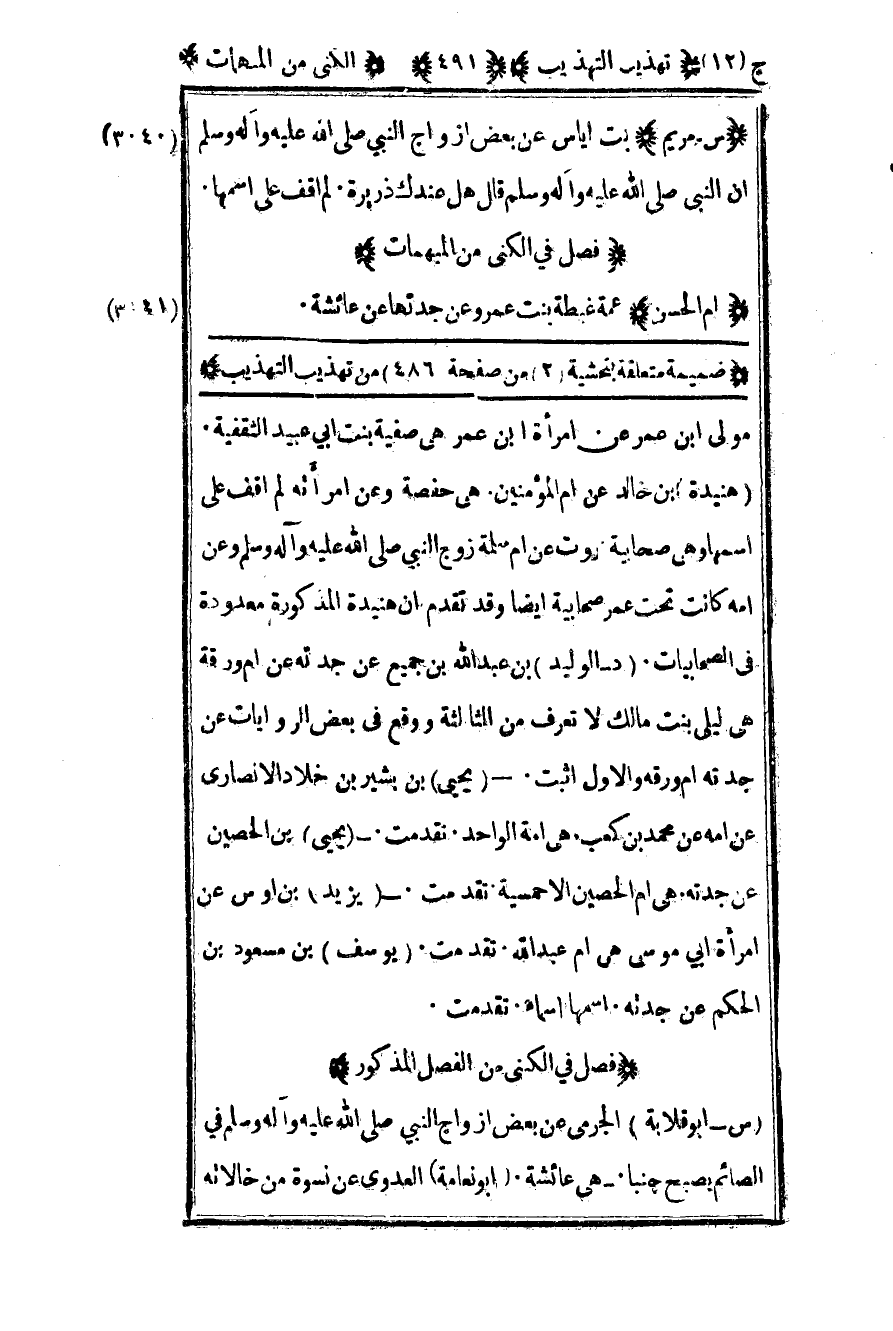 ج (١٢) ﴿ تهذيب التهذيب ﴾ ﴿ ٤٩١ ﴾ ﴿ الكنى من المبهمات ﴾
﴿ س-مريم ﴾ بنت اياس عن بعض ازواج النبي صلى الله عليه وآله وسلم (٣٠٤٠)
ان النبى صلى الله عليه وآله وسلم قال هل عندك ذريرة · لم اقف على اسمها ·
﴿ فصل في الكنى من المبهمات ﴾
﴿ ام الحسن ﴾ عمة غبطة بنت عمرو عن جدتها عن عائشة · (٣٠٤١)
﴿ ضميمة متعلقة بتحشية (٢) من صفحة ٤٨٦) من تهذيب التهذيب ﴾
مولى ابن عمر عن امرأة ابن عمر هى صفية بنت ابي عبيد الثقفية ·
( هنيدة ) بن خالد عن ام المؤمنين · هى حفصة وعن امرأته لم اقف على
اسمها وهى صحابية روت عن ام سلمة زوج النبي صلى الله عليه وآله وسلم وعن
امه كانت تحت عمر صحابية ايضا وقد تقدم ان هنيدة المذكورة معدودة
فى الصحابيات · ( د-الوليد ) بن عبدالله بن جميع عن جدته عن ام ورقة
هى ليلى بنت مالك لا تعرف من الثالثة ووقع فى بعض الروايات عن
جدته ام ورقه والاول اثبت · — ( يحيى) بن بشير بن خلاد الانصارى
عن امه عن محمد بن كعب · هى امة الواحد · تقدمت · — (يحيى) بن الحصين
عن جدته · هى ام الحصين الاحمسية · تقدمت · — ( يزيد ) بن اوس عن
امرأة ابي موسى هى ام عبدالله · تقدمت · ( يوسف ) بن مسعود بن
الحكم عن جدته · اسمها اسماء · تقدمت ·
﴿ فصل في الكنى من الفصل المذكور ﴾
(س — ابو قلابة ) الجرمى عن بعض ازواج النبي صلى الله عليه وآله وسلم في
الصائم يصبح جنبا · — هى عائشة · ( ابو نعامة) العدوى عن نسوة من خالاته